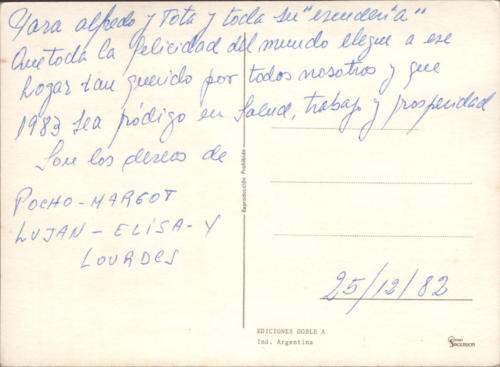 Para alfredo y Tota y toda su "escudería"
Que toda la felicidad del mundo llegue a ese
hogar tan querido por todos nosotros y que
1983 sea pródigo en Salud, trabajo y prosperidad
Son los deseos de
POCHO-MARGOT
LUJAN-ELISA-Y
LOURDES
25/12/82
Reproducción Prohibida
EDICIONES DOBLE A
Ind. Argentina